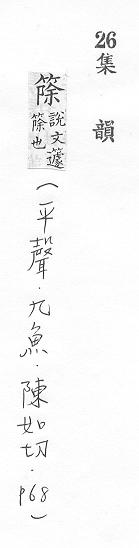 26集韻
篨說文籧篨也(平聲.九魚.陳如切.P68)